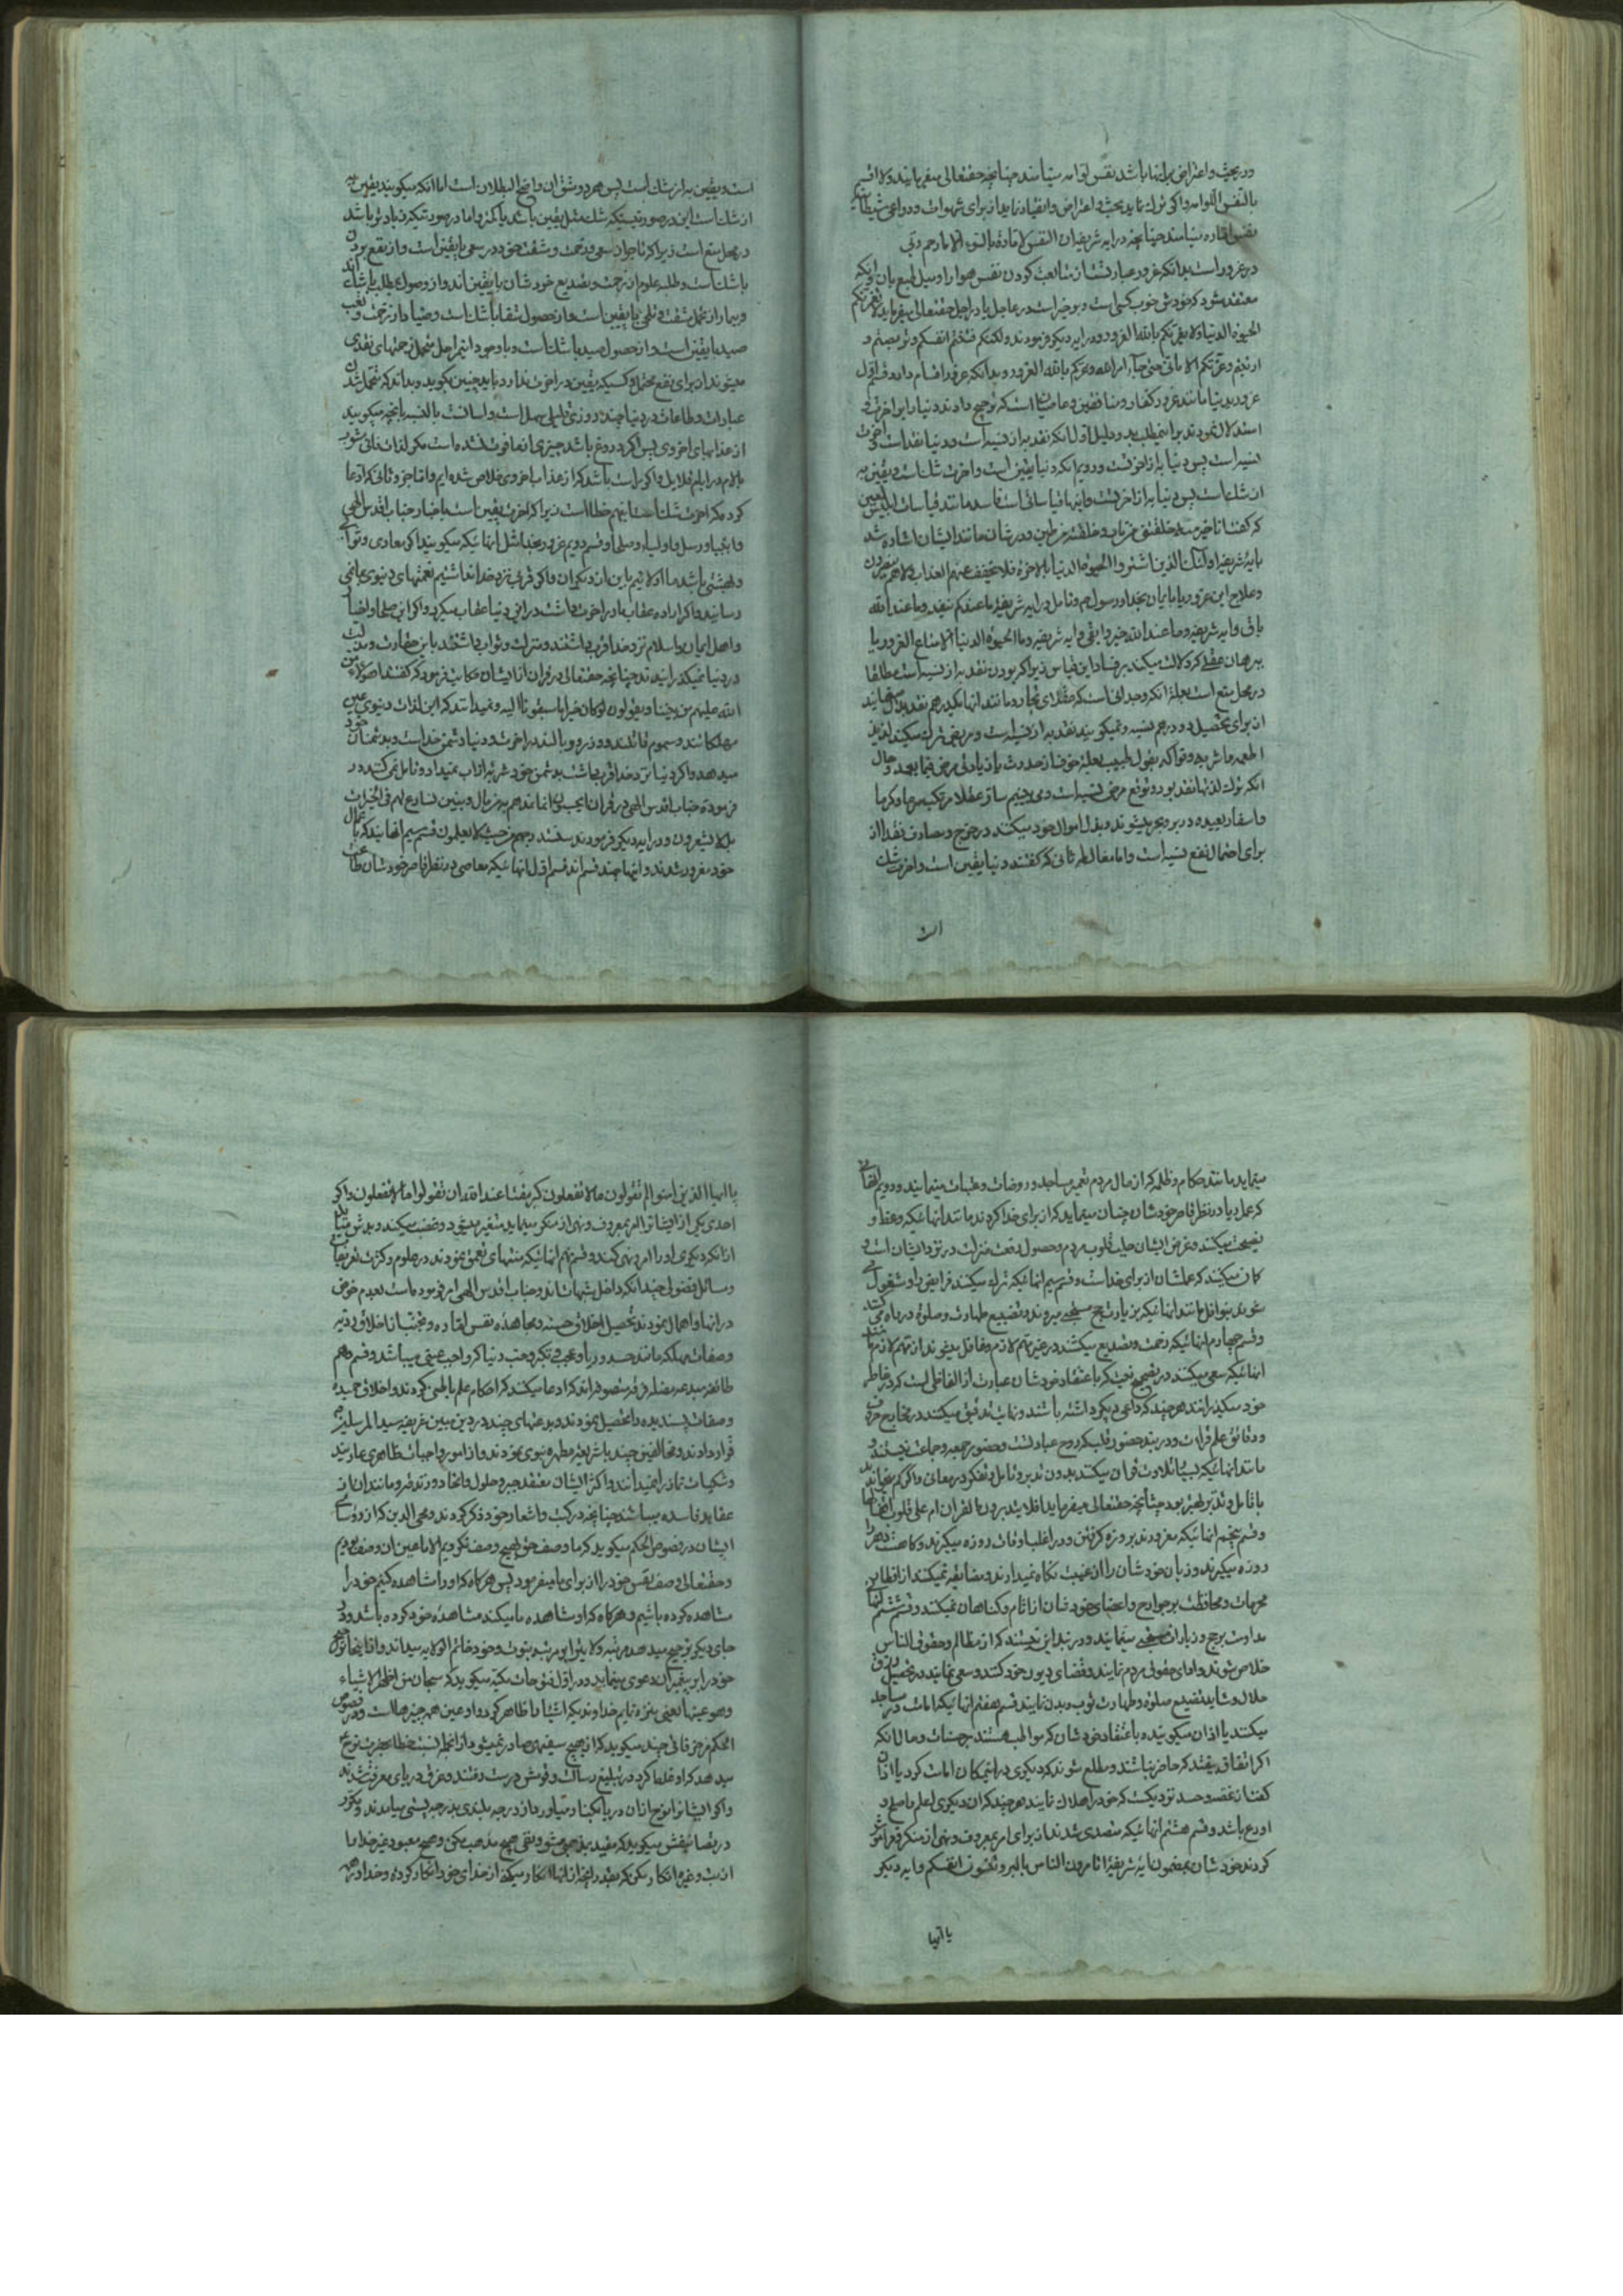 در بحث و اعتراض برانها باشد نفس لوامه مینامند چنانچه حقتعالی میفرمایند ولا اقسم
بالنفس اللوامه و اگر ترک نماید بحث و اعتراض و انقیاد نماید از برای شهوات و دواعی شیطانیه
نفس اماره مینامند چنانچه در ایه شریفه ان النفس لامارة بالسوء الا ما رحم ربی
در غرور است بدانکه غرور عبارتست از متابعت کردن نفس هوا را و میل طبع بان و اینکه
معتقد شود که خودش خوب کسی است و بر خیر است در عاجل یا در اجل حقتعالی میفرماید لا تغرنکم
الحیوة الدنیا ولا یغرنکم بالله الغرور و در ایه دیگر فرمودند ولکنکم فتنتم انفسکم و تربصتم و
ارتبتم و غرتکم الامانی حتی جاء امر الله و غرکم بالله الغرور و بدانکه غرور اقسام دارد قسم اول
غرور بدنیا مانند غرور کفار و منافقین و عاصیان است که ترجیح دادند دنیا را بر اخرت و
استدلال نمودند بر اینمطلب بدو دلیل اول انکه نقد به از نسیه است و دنیا نقد است و اخرت
نسیه است پس دنیا به از اخرتست و دویم انکه دنیا یقین است و اخرت شک است و یقین به
از شک است پس دنیا به از اخرتست و اینها قیاساتی است فاسد مانند قیاسات ابلیس لعین
که گفت انا خیر منه خلقتنی من نار و خلقته من طین و در شان مانند ایشان اشاره شد
بایه شریفه اولئک الذین اشتروا الحیوة الدنیا بالاخرة فلا یخفف عنهم العذاب ولا هم ینصرون
و علاج این غرور یا بایمان بخدا و رسول ص و تامل در ایه شریفه ما عندکم ینفد و ما عند الله
باق و ایه شریفه و ما عند الله خیر و ابقی و ایه شریفه و ما الحیوة الدنیا الا متاع الغرور یا
ببرهان عقلی که دلالت میکند بر فساد این قیاس زیرا که بودن نقد به از نسیه است مطلقا
در محل منع است بعلة انکه وجدانی است که عقلای تجار و مانند انها یکدرهم نقد بذل مینمایند
از برای تحصیل دو درهم نسیه و نمیگویند نقد به از نسیه است و مریض ترک میکند لذایذ
اطعمه و اشربه و فواکه بقول طبیب بعلة خوف از حدوث یا زیادتی مرض فیما بعد و حال
انکه ترک لذتها نقد بود و توقع مرض نسیه است و می بینیم سایر عقلا مرتکب سرما و گرما
و اسفار بعیده در بر و بحر میشوند و بذل اموال خود میکنند در خرج و مصارف نقدا از
برای احتمال نفع نسیه است و اما مغالطه ثانی که گفتند دنیا یقین است و اخرت شک
است
است و یقین به از شک است پس هر دو شق ان واضح البطلان است اما انکه میگویند یقین به
از شک است این در صورتیستکه شک مثل یقین باشد یا کمتر و اما در صورتیکه زیادتر باشد
در محل منع است زیرا که تاجر از سعی و زحمت و مشقت خود در سعی با یقین است و از نفع بردن
با شک است و طلبه علوم از زحمت و تضدیع خودشان با یقین اند و از وصول بمطلب با شک اند
و بیمار از تحمل مشقت و تلخی با یقین است و از حصول شفا با شک است و صیاد از زحمت و تعب
صید با یقین است و از حصول صید با شک است و با وجود این مراحل متحمل زحمتهای نقدی
میشوند از برای نفع محتمل و کسیکه یقین در اخرت ندارد باید چنین بگوید و بداند که متحمل شدن
عبادات و طاعات در دنیا چند روزی قلیلی سهل است و اسانست بالنسبه بانچه میگویند
از عذابهای اخروی پس اگر دروغ باشد چیزی از ما فوت نشده است مگر لذات فانی مشوب
بالام در ایام قلایل و اگر راست باشد که از عذاب اخروی خلاص شده ایم و اما جزو ثانی که ادعا
کردند که اخرت شک است اینهم خطا است زیرا که اخرت یقین است باخبار جناب اقدس الهی
و انبیا و رسل و اولیاء و صلحا و قسم دویم غرور بخدا مثل انهائیکه میگویند اگر معادی و ثوابی
و بهشتی باشد ما اولاتریم باین از دیگران و اگر قربی نزد خدا نداشتیم نعمتهای دنیوی بما نمی
رسانید و اگر اراده عقاب ما در اخرت داشت در این دنیا عقاب میکرد و اگر این صلحا و اخیار
و اهل ایمان و اسلام نزد خدا قرب داشتند و منزلت و ثواب داشتند باین حقارت و مذلت
در دنیا نمیگذرانیدند چنانچه حقتعالی در قران از ایشان حکایت فرمود که گفتند اهؤلاء من
الله علیهم من بیننا و یقولون لو کان خیرا ما سبقونا الیه و نمیدانند که این لذات دنیوی عین
مهلکاتند و سموم قاتلند و وزر و وبالند در اخرت و دنیا دشمن خداست و بدشمنان خود
میدهد و اگر دنیا نزد خدا قرب داشت بدشمن خود شربه از اب نمیداد و تامل نمی کنند در
فرموده جناب اقدس الهی در قران ایحسبون انما نمدهم به من مال و بنین نسارع لهم فی الخیرات
بل لا یشعرون و در ایه دیگر فرمودند سنستدرجهم من حیث لا یعلمون قسم سیم انهایند که باعمال
خود مغرور شدند و انها چند قسم اند قسم اول انهائیکه معاصی در نظر قاصر خودشان طاعت
مینماید مانند حکام و ظلمه که از مال مردم تعمیر مساجد و روضات و عتبات مینمایند و دویم انهائی
که عمل ریا در نظر قاصر خودشان چنان مینماید که از برای خدا کردند مانند انهائیکه وعظ و
نصیحت میکنند و غرض ایشان جلب قلوب مردم و حصول رفعت منزلت در نزد ایشان است و
گمان میکنند که عملشان از برای خداست و قسم سیم انهائیکه ترک میکنند فرایض را و مشغول می
شوند بنوافل مانند انهائیکه بزیارت حج مستحبی میروند و تضییع طهارت و صلوة در راه می کنند
و قسم چهارم انهائیکه زحمت و تضدیع میکشند در غیر مهم لازم و غافل میشوند از مهم لازم مانند
انهائیکه سعی میکنند در تصحیح نیت که باعتقاد خودشان عبارت از الفاظی است که در خاطر
خود میگذرانند هر چند که داعی دیگر داشته باشند و نهایت تدقیق میکنند در مخارج حروف
و دقائق علم قرائت و در بند حضور قلب که روح عبادتست و حضور جمعه و جماعت نیستند و
مانند انهائیکه بسیار تلاوت قران میکنند بدون تدبر و تامل و تفکر در معانی و اگر کم بخوانند
با تامل و تدبر بهتر بود چنانچه حقتعالی میفرماید افلا یتدبرون القران ام علی قلوب اقفالها
و قسم پنجم انهائیکه مغرورند بروزه گرفتن و در اغلب اوقات روزه میگیرند و گاهست دهر را
روزه میگیرند و زبان خودشان را از غیبت نگاه نمیدارند و مضایقه نمیکنند از افطار بر
محرمات و محافظت بر جوارح و اعضای خودشان از اثام و گناهان نمیکنند و قسم ششم انهائیکه
مداومت بر حج و زیارات مستحبی مینمایند و در بند این نیستند که از مظالم و حقوق الناس
خلاص شوند و ادای حقوق مردم نمایند و قضای دیون خود کنند و سعی نمایند در تحصیل رزق
حلال و شاید تضییع صلوة و طهارت ثوب و بدن نمایند قسم هفتم انهائیکه امامت در مساجد
میکنند یا اذان میگویند باعتقاد خودشان که مواظب هستند بر حسنات و حال انکه
اگر اتفاق بیفتد که حاضر نباشند و مطلع شوند که دیگری در انمکان امامت کرد یا اذان
گفت از غصه و حسد نزدیکست که خود را هلاک نمایند هر چند که ان دیگری اعلم و اصلح و
اورع باشد و قسم هشتم انهائیکه متصدی شدند از برای امر بمعروف و نهی از منکر و فراموش
کردند خودشان بمضمون ایه شریفه اتامرون الناس بالبر و تنسون انفسکم و ایه دیگر
یا ایها
یا ایها الذین امنوا لم تقولون ما لا تفعلون کبر مقتا عند الله ان تقولوا ما لا تفعلون و اگر
احدی یکی از ایشانرا امر بمعروف و نهی از منکر مینماید متغیر میشود و غضب میکند و بدش میاید
از انکه دیگری او را امر و نهی کند و قسم نهم انهائیکه منتهای تعمق نمودند در علوم و کثرت تفریعات
و مسائل فضولی چندانکه داخل شبهات اند و جناب اقدس الهی امر فرموده است بعدم خوض
در انها و اهمال نمودند تحصیل اخلاق حسنه و مجاهده نفس اماره و مجتنب از اخلاق ردیه
و صفات مهلکه مانند حسد و ریا و عجب و تکبر و حب دنیا که واجب عینی میباشد و قسم دهم
طائفه مبدعه مضله فرقه متصوفه اند که ادعا میکنند که احکام علم باطنی کردند و اخلاق حمیده
و صفات پسندیده را تحصیل نمودند و بدعتهای چند در دین مبین عریضه سید المرسلین ص
قرار دادند و مخالفتی چند با شریعة مطهره نبوی نمودند و از امور واجبات ظاهری عاریند
و شکیات نماز را نمیدانند و اکثر ایشان معتقد جبر و حلول و اتحاد و زندقه و مانند ان از
عقاید فاسده میباشند چنانچه در کتب و اشعار خود ذکر کردند و محیی الدین که از رؤسای
ایشان در فصوص الحکم میگوید که ما وصف حق بهیچ وصف نکردیم الا ما عین ان وصف بودیم
و حقتعالی وصف نفس خود را از برای ما میفرمود پس هرگاه که او را مشاهده کنیم خود را
مشاهده کرده باشیم و هرگاه که او مشاهده ما میکند مشاهده خود کرده باشد و در
جای دیگر ترجیح میدهد مرتبه ولایترا بر مرتبه نبوت و خود خاتم الولایه میداند و از اینجا ترجیح
خود را بر پیغمبران دعوی مینماید و در اول فتوحات مکیه میگوید که سبحان من اظهر الاشیاء
و هو عینها یعنی منزه نمایم خداوندیکه اشیا را ظاهر کرد و او عین همه چیزها است و در فصوص
الحکم مزخرفاتی چند میگوید که از هیچ سفیهی صادر نمیشود از انجمله نسبت خطا بحضرت نوح ع
میدهد که او غلط کرد در تبلیغ رسالت و قومش درست رفتند و غرق دریای معرفت شدند
و اگر ایشانرا نوح از ان دریا بکنار میاورد از درجه بلندی بدرجه پستی میامدند و نیز
در بعضا نیفش میگوید که مقید بمذهبی مشو و نفی هیچ مذهب مکن و هیچ معبود غیر خدا را
از بت و غیره انکار مکن که بقدر انچه از انها انکار میکنی از خدای خود انکار کرده و خدا در همه